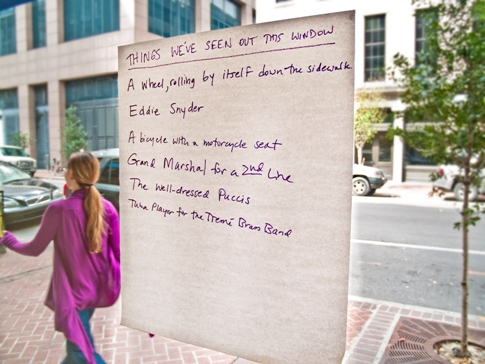 THINGS WE'VE SEEN OUT THIS WINDOW
A wheel, rolling by itself down the sidewalk
Eddie Snyder
A bicycle with a motorcycle seat
Grand Marshal for a 2nd Line
The well-dressed Puccis
Tuba Player for the Tremé Brass Band